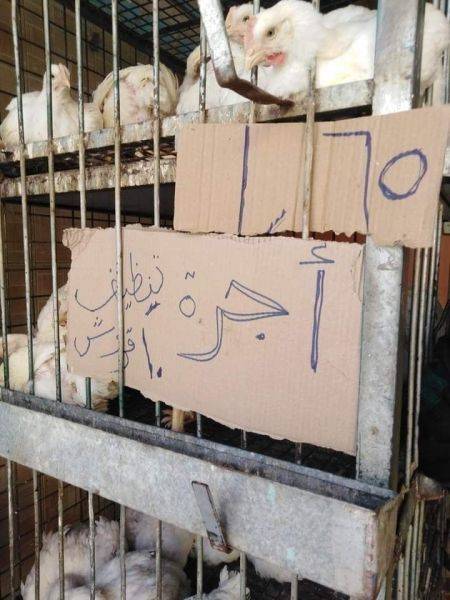 ١٫٦٥
أجرة تنظيف
١٠ قروش